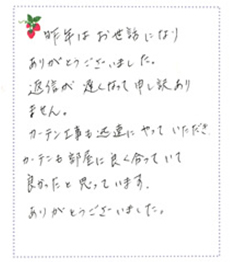 昨年はお世話になり
ありがとうございました。
返信が遅くなって申し訳あり
ません。
カーテン工事も迅速にやっていただき
カーテンも部屋に良く合っていて
良かったと思っています。
ありがとうございました。